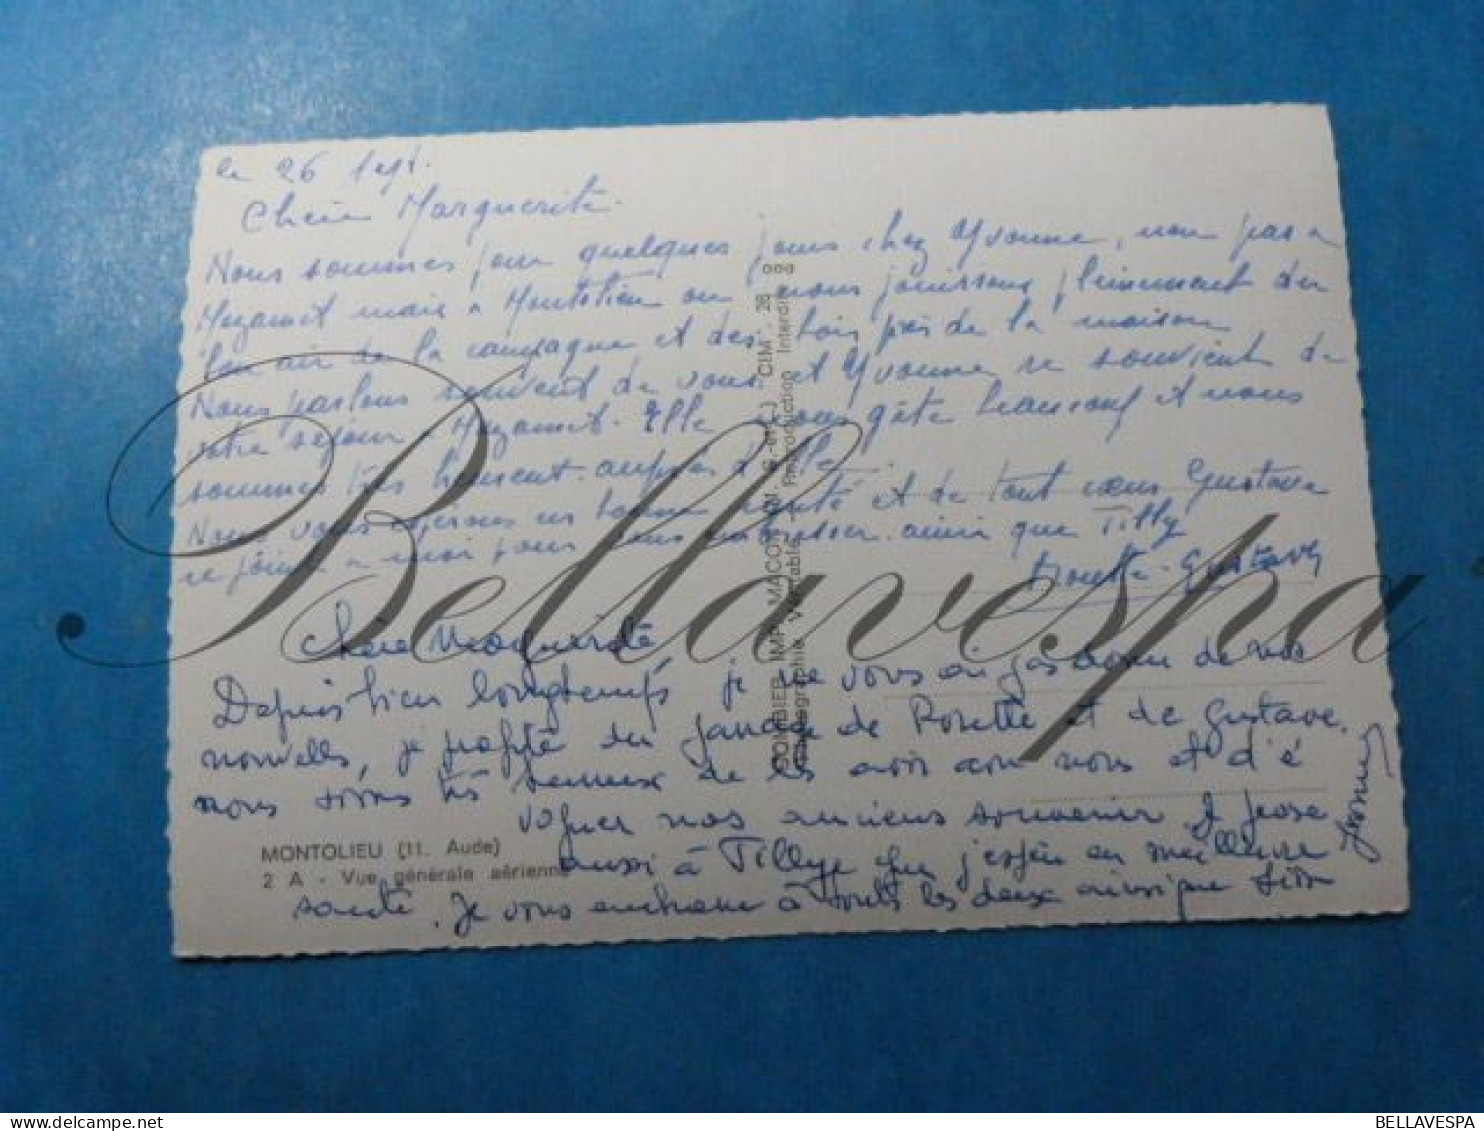 le 26 Sept.
Chère Marguerite.
Nous sommes pour quelques jours chez Yvonne, non pas à
Mazamet mais à Montolieu ou nous jouissons pleinement du
bon air de la campagne et des bois près de la maison
Nous parlons souvent de vous et Yvonne se souvient de
votre séjour à Mazamet. Elle nous gâte beaucoup et nous
sommes très auprès d'elle.
Nous vous espérons en bonne santé et de tout cœur Gustave
se joint à moi pour vous embrasser ainsi que Tilly
Gustave
Chère Marguerite,
Depuis bien longtemps je ne vous ai pas donné de nos
nouvelles, je profite du de Rosette et de Gustave.
nous sommes très heureux de les avoir avec nous et d'é
voquer nos anciens souvenirs. Je pense
aussi à Tillye que j'espère en meilleure
santé. Je vous embrasse à toutes les deux ainsi que
Yvonne
MONTOLIEU (11. Aude)
2 A - Vue générale aérienne
COMBIER IMP. MACON (S.-et-L.) "CIM" - 28 000
Photographie Véritable - Reproduction Interdite
Bellavespa
www.delcampe.net
BELLAVESPA